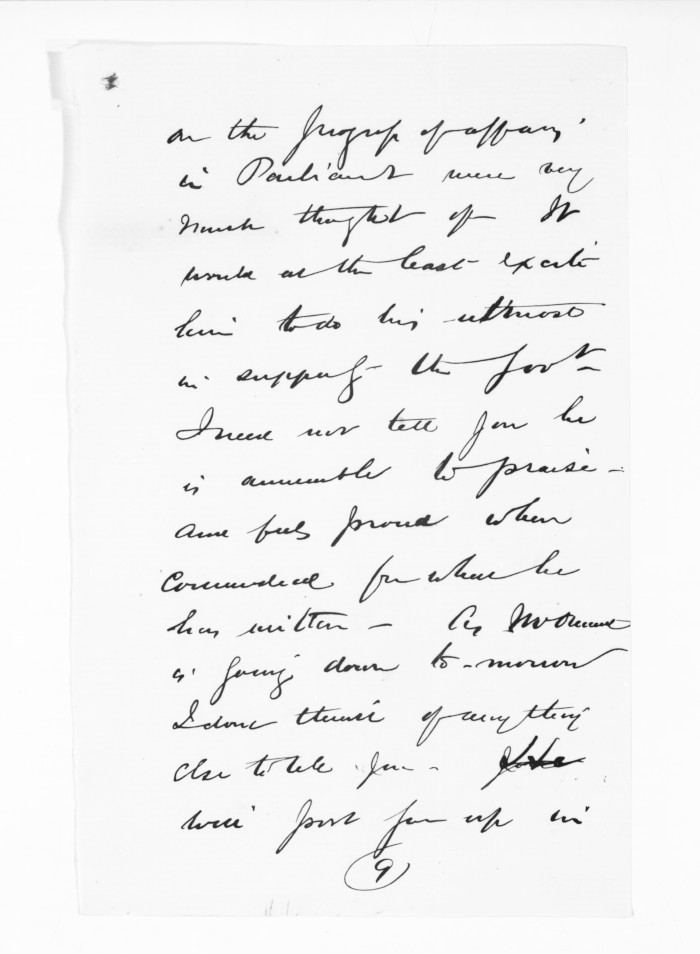 on the progress of affairs
in Parliament were very
much thought of It
would at the least excite
him to do his utmost
in supporting the Govt -
I need not tell you he
is amenable to praise -
and feels proud when
commended for what he
has written - As
is going down to-morrow
I dont think of anything
else to tell you -
will post you up in
(9)